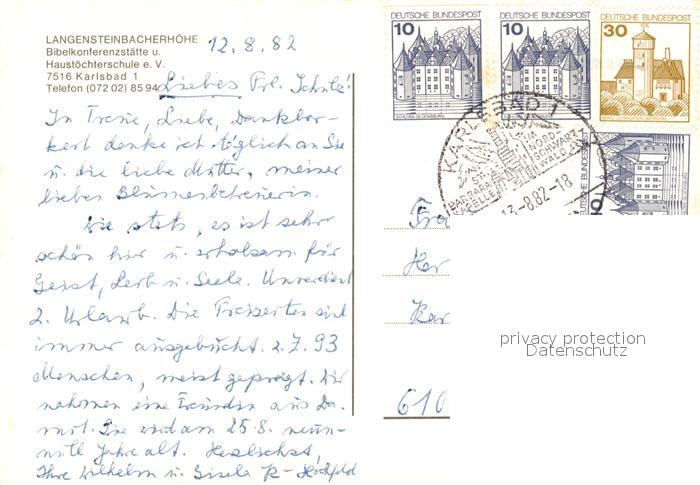 LANGENSTEINBACHERHÖHE
Bibelkonferenzstätte u.
Haustöchterschule e. V.
7516 Karlsbad 1
Telefon (072 02) 85 94
12.8.82
Liebes Frl. Schulz!
In Treue, Liebe, Dankbar-
keit denke ich täglich an Sie
u. die liebe Mutter, meiner
lieben Blumenbetreuerin.
Wie stets, es ist sehr
schön hier u. erholsam für
Geist, Leib u. Seele. Unverdient
2. Urlaub. Die Freizeiten sind
immer ausgebucht. z. Z. 93
Menschen, meist geprägt. Wir
nahmen eine Freundin aus Da.
mit. Sie wird am 25.8. neun-
Jahre alt. Herzlichst,
Ihre Wilhelm u. Gisela K- Hochfeld
DEUTSCHE BUNDESPOST
10
SCHLOSS GLÜCKSBURG
DEUTSCHE BUNDESPOST
10
DEUTSCHE BUNDESPOST
30
DEUTSCHE BUNDESPOST
10
KARLSBAD 1
NÖRDL.
SCHWARZ-
WALD
ST.
BARBARA
KAPELLE
13.-8.82-18
Fra
Her
Kar
610
privacy protection
Datenschutz